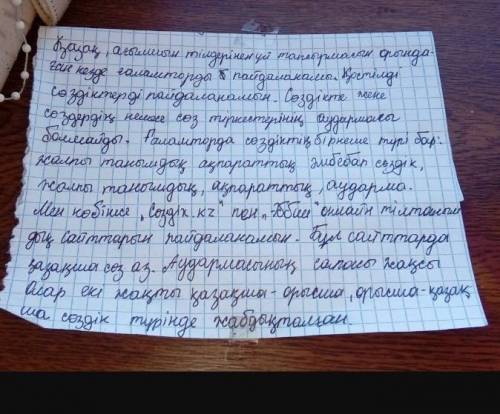 Қазақ, ағылшын тілдерінен үй тапсырмасын орында-
ған кезде ғаламторды пайдаланамы. Қостілді
сөздіктерді пайдаланамын. Сөздікте жеке
сөздердің немесе сөз тіркестерінің аудармасы
болмайды. Ғаламторда сөздіктің бірнеше түрі бар:
жалпы танымдық ақпараттық әмбебап сөздік,
жалпы танымдық, ақпараттық, аударма.
Мен көбінше „Сөздік.кz" пен „Аббат" онлайн
дық сайттарын пайдаланамын. Бұл сайттарда
қазақша сөз аз. Аудармасының сапасы жақсы
Олар екі жақты қазақша - орысша, орысша - қазақ
ша сөздік түрінде жабдықталған.